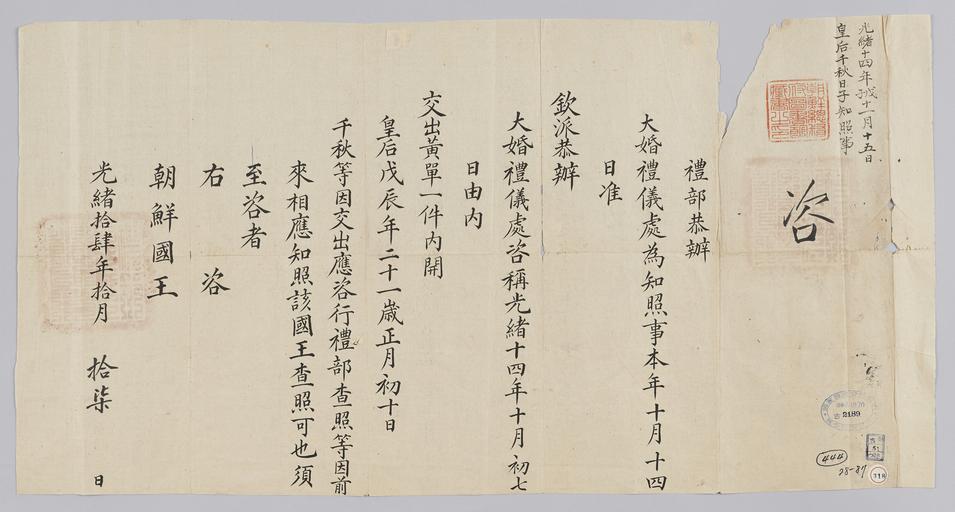 光緒十四年戊子十一月十五日
皇后千秋日子知照事
咨
禮部恭辦
大婚禮儀處為知照事本年十月十四
日准
欽派恭辦
大婚禮儀處咨稱光緒十四年十月初七
日由內
交出黃單一件內開
皇后戊辰年二十一歲正月初十日
千秋等因交出應咨行禮部查照等因前
來相應知照該國王查照可也須
至咨者
右咨
朝鮮國王
光緒拾肆年拾月拾柒日
2189
444
28-87
318